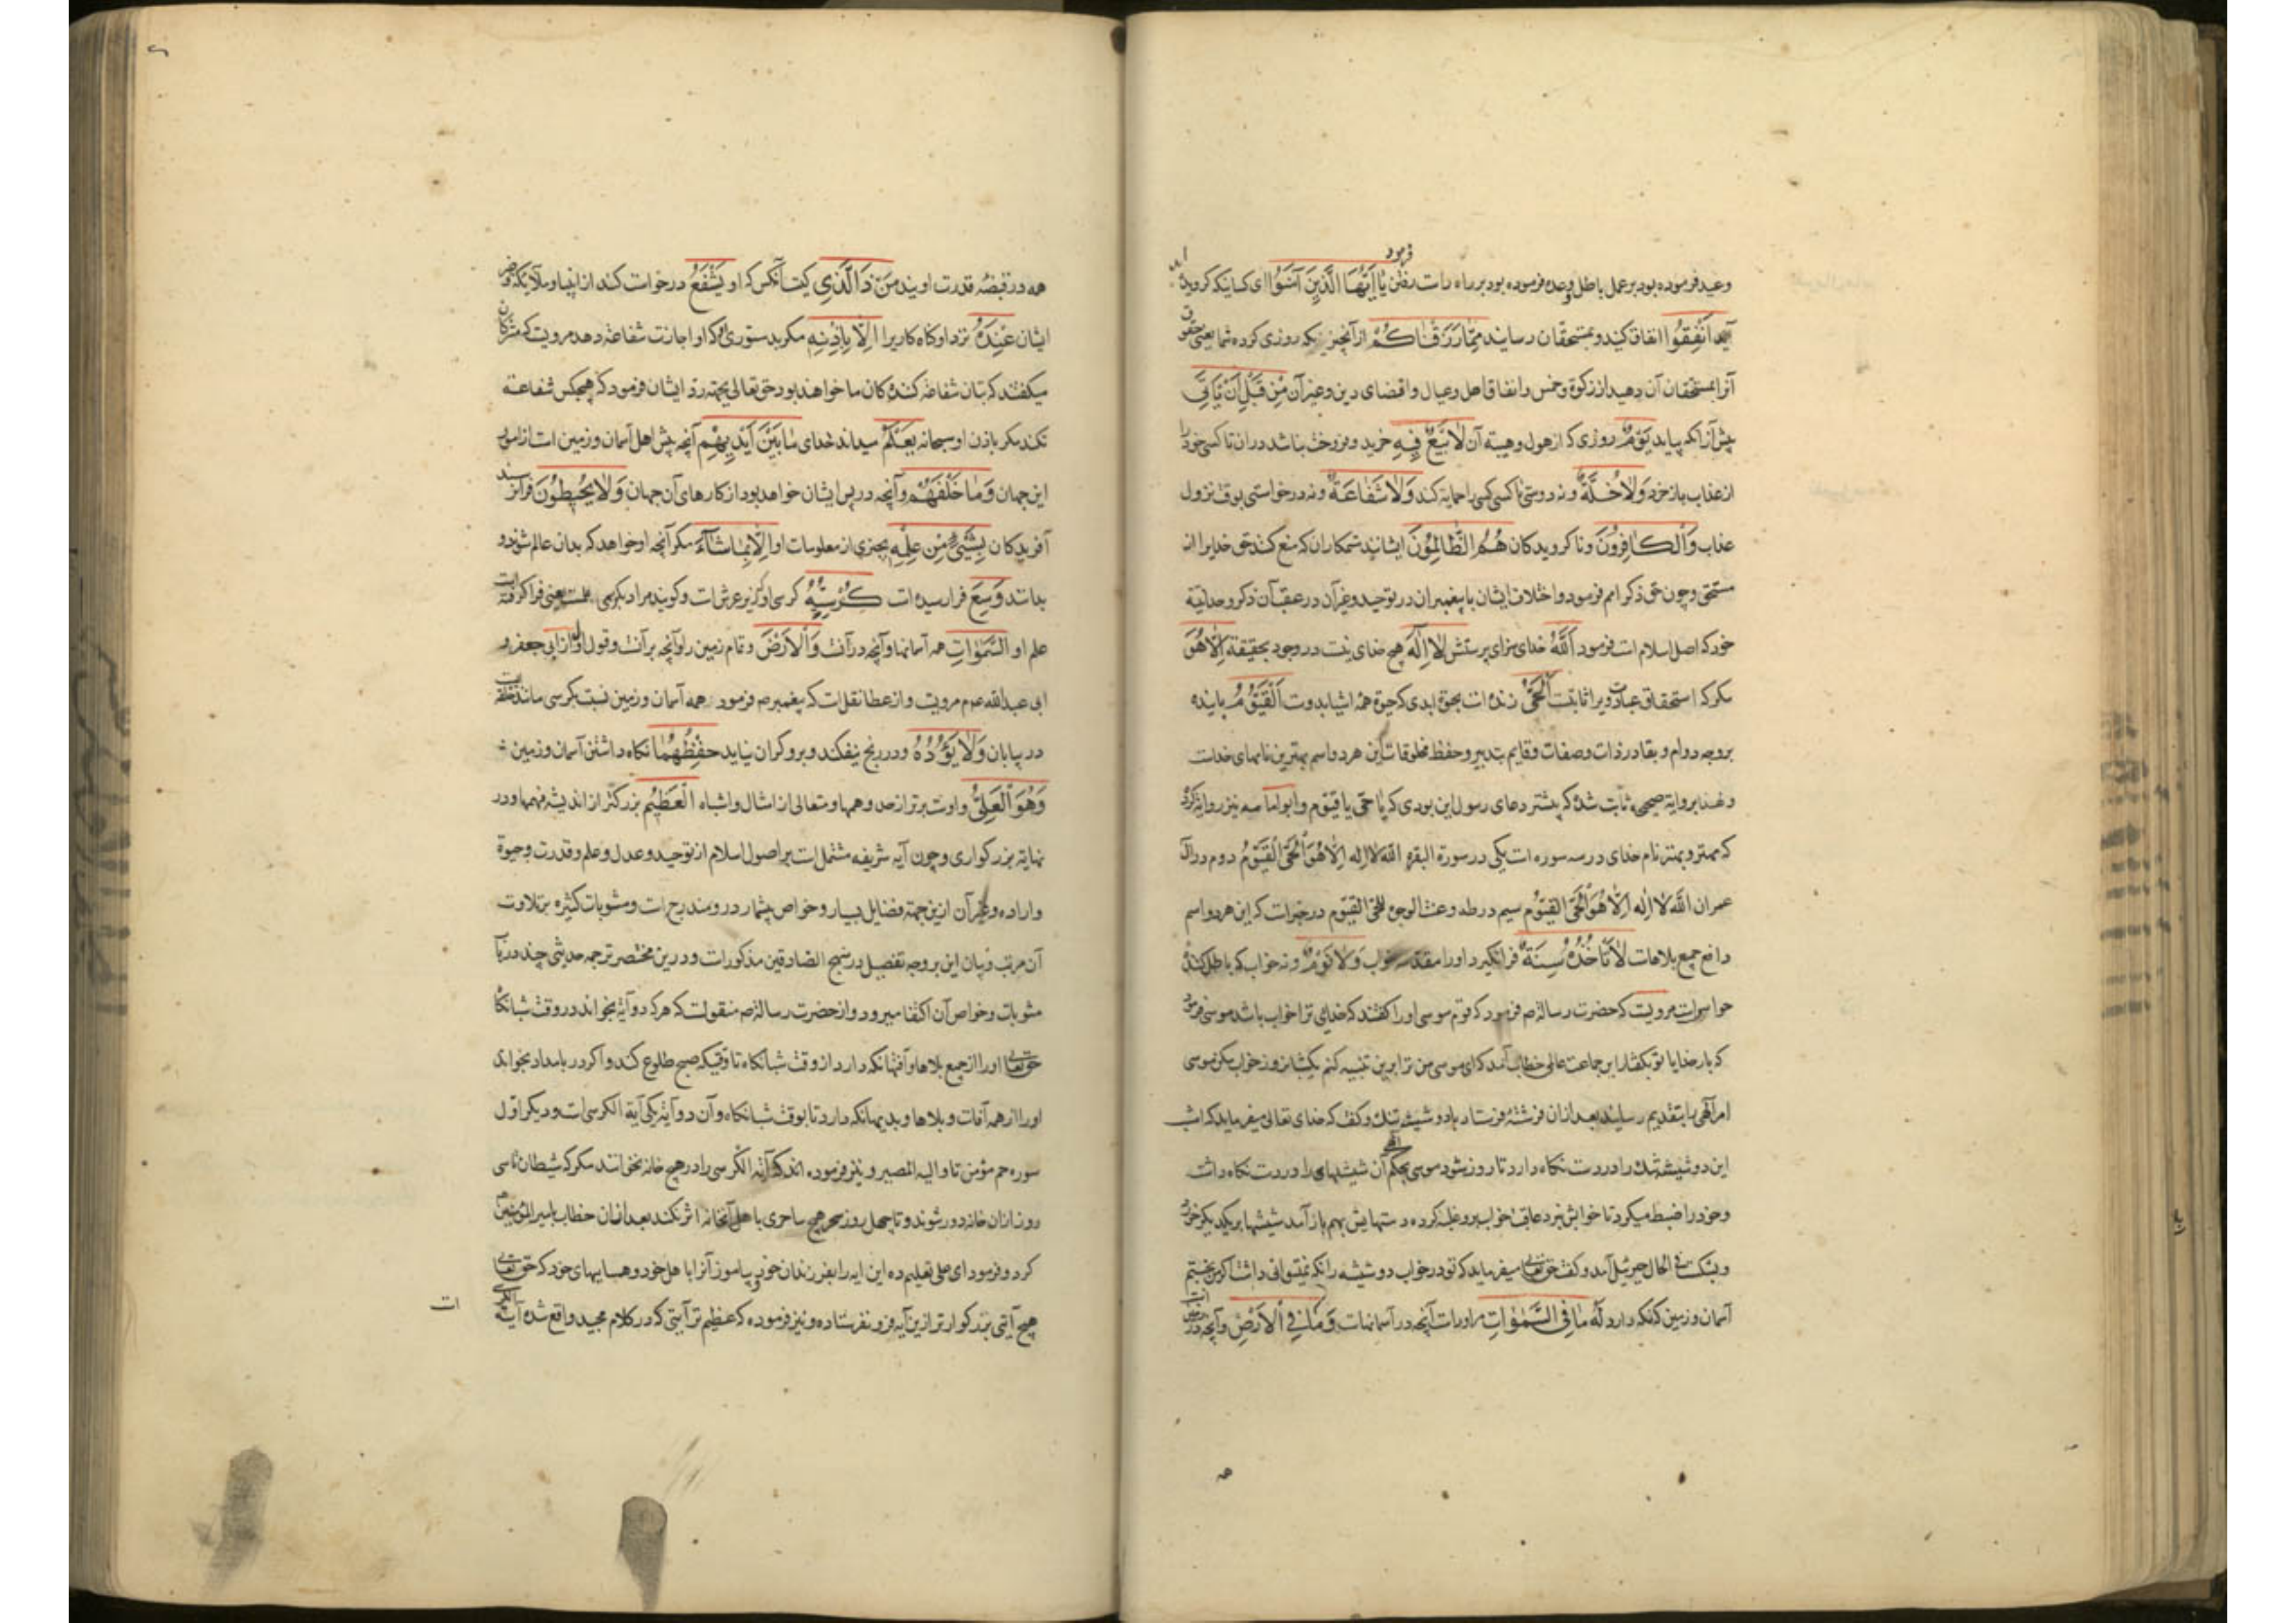 وعید فرموده بود بر عمل باطل و وعده فرموده بود بر راه راست رفتن فرمود یا ایها الذین آمنوا ای کسانیکه کرویده
اید انفقوا انفاق کنید و بمستحقان رسانید مما رزقناکم از آنچیزیکه روزی کرده شما یعنی حقوق
آنرا بمستحقان آن دهید از زکوة و خمس و انفاق اهل و عیال و اقضای دین و غیر آن من قبل ان یاتی
پیش از آنکه بیاید یوم روزی که از هول و هیبة آن لا بیع فیه خرید و فروخت نباشد در ان تا کسی خود را
از عذاب باز خرد ولا خلة و نه دوستی تا کسی کسی را حمایة کند ولا شفاعة و نه درخواستی بوقت نزول
عذاب والکافرون و ناکرویدکان هم الظالمون ایشانند ستمکاران که منع کنند حق خدایرا از
مستحق و چون حق ذکر امم فرمود و اختلاف ایشان با پیغمبران در توحید و غیر آن در عقب آن ذکر وحدانیة
خود که اصل اسلام است فرمود الله خدای سزای پرستش لا اله هیچ خدای نیست در وجود بحقیقة الا هو
مکر که استحقاق عبادت ویرا ثابتست الحی زنده است بحیوة ابدی که حیوة همه اشیا بدوست القیوم پاینده
بروجه دوام و بقا در ذات و صفات و قایم بتدبیر و حفظ مخلوقات این هر دو اسم بهترین نامهای خداست
و لهذا بروایة صحیحه ثابت شده که بیشتر دعای رسول این بودی که یا حی یا قیوم و ابو امامه نیز روایة کرده
که مهتر و بهتر نام خدای در سه سوره است یکی در سورة البقره الله لا اله الا هو الحی القیوم دوم در آل
عمران الله لا اله الا هو الحی القیوم سیم در طه و عنت الوجوه للحی القیوم در خبرست که این هر دو اسم
دافع جمیع بلاهاست لا تاخذه سنة فرا نگیرد او را مقدمه خواب ولا نوم و نه خواب که باطل کننده
حواس است مرویست که حضرت رسالة ص فرمود که قوم موسی او را کفتند که خدای ترا خواب باشد موسی فرمود
که بار خدایا تو بکفتار این جماعت عالمی خطاب آمد که ای موسی من ترا برین تنبیه کنم یکشبانروز خواب مکن موسی
امر الهی را بتقدیم رسانید بعد از ان فرشتۀ فرستاد با دو شیشه تنک و کفت که خدای تعالی میفرماید که امشب
این دو شیشه تنک را در دست نکاه دار تا روز شود موسی بحکم الهی آن شیشهای را در دست نکاه داشت
و خود را ضبط میکرد تا خوابش نبرد عاقبت خواب برو غلبه کرده دستهایش بهم باز آمد شیشها بر یکدیکر خورد
و بشکست فی الحال جبرئیل آمد و کفت حق تعالی میفرماید که تو در خواب دو شیشه را نکه نمیتوانی داشت اگر من بخسبم
آسمان و زمین که نکه دارد له ما فی السموات مر اوراست آنچه در آسمانهاست و ما فی الارض و آنچه در زمین است
همه در قبضه قدرت اویند من ذا الذی کیست آنکس که او یشفع درخواست کند از انبیا و ملایکه و غیر
ایشان عنده نزد او کناه کاریرا الا باذنه مکر بدستوری که او اجازت شفاعة دهد مرویست که مشرکان
میکفتند که بتان شفاعة کنندکان ما خواهند بود حق تعالی بجهة رد ایشان فرمود که هیچکس شفاعة
نکند مکر باذن او سبحانه یعلم میداند خدای ما بین ایدیهم آنچه پیش اهل آسمان و زمین است از امور
این جهان و ما خلفهم و آنچه در پس ایشان خواهد بود از کارهای آن جهان ولا یحیطون فرا نرسند
آفریدکان بشیئ من علمه بچیزی از معلومات او الا بما شاء مکر آنچه او خواهد که بدان عالم شوند و
بدانند وسع فرا رسیده است کرسیه کرسی او که زیر عرش است و کویند مراد بکرسی علمست یعنی فرا کرفته است
علم او السموات همه آسمانها و آنچه در آنست والارض و تمام زمین را و آنچه بر آنست و قول اول از ابی جعفر و
ابی عبدالله ع م مرویست و از عطا نقلست که پیغمبر ص فرمود همه آسمان و زمین نسبت بکرسی مانند حلقه ایست
در بیابان ولا یؤده و در رنج نیفکند و برو کران نیاید حفظهما نکاه داشتن آسمان و زمین
وهو العلی و اوست برتر از حد وهمها و متعالی از امثال و اشباه العظیم بزرکتر از اندیشه فهمها و در
نهایة بزرکواری و چون آیه شریفه مشتملست بر اصول اسلام از توحید و عدل و علم و قدرت و حیوة
و اراده و غیر آن ازین جهة فضایل بسیار و خواص بیشمار در و مندرج است و مثوبات کثیره بتلاوت
آن مرتب و بیان این بر وجه تفصیل در منهج الصادقین مذکورست و درین مختصر ترجمه حدیثی چند در باب
مثوبات و خواص آن اکتفا میرود و از حضرت رسالة ص منقولست که هر که دو آیة بخواند در وقت شبانکاه
حق تعالی او را از جمیع بلاها و آفتها نکه دارد از وقت شبانکاه تا وقتیکه صبح طلوع کند و اکر در بامداد بخواند
او را از همه آفات و بلاها و بدیها نکه دارد تا بوقت شبانکاه و آن دو آیة یکی آیة الکرسی است و دیکر اول
سوره حم مؤمن تا والیه المصیر و نیز فرموده اند که آیة الکرسی را در هیچ خانه نخوانند مکر که شیطان تا سی
روز از ان خانه دور شوند و تا چهل روز سحر هیچ ساحری با هل آنخانه اثر نکند بعد از ان خطاب بامیر المؤمنین
کرد و فرمود ای علی تعلیم ده این ایه را بفرزندان خود و بیاموز آنرا باهل خود و همسایهای خود که حق تعالی
هیچ آیتی بزرکوارتر ازین آیه فرو نفرستاده و نیز فرموده که عظیم تر آیتی که در کلام مجید واقع شده آیة الکرسی
است